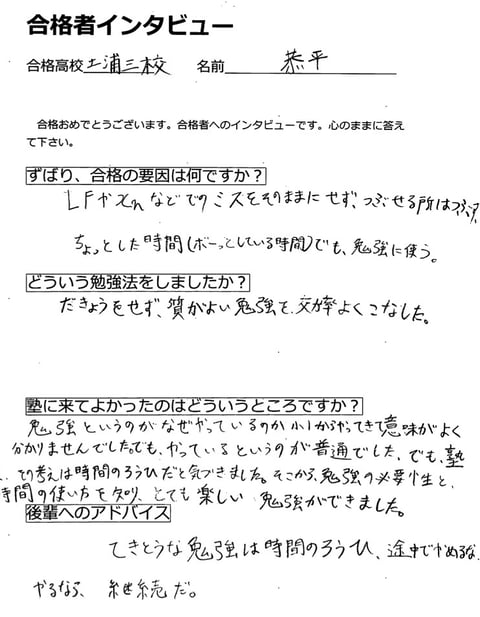 合格者インタビュー
合格高校 土浦三校 名前 恭平
合格おめでとうございます。合格者へのインタビューです。心のままに答え
て下さい。
ずばり、合格の要因は何ですか？
などでのミスをそのままにせず、つぶせる所はつぶす。
ちょっとした時間(ボーっとしている時間)でも、勉強に使う。
どういう勉強法をしましたか？
だきょうをせず、質がよい勉強を、効率よくこなした。
塾に来てよかったのはどういうところですか？
勉強というのがなぜやっているのか小からやってきて意味がよく
分かりませんでした。でも、やっているというのが普通でした、でも、塾
その考えは時間のろうひだと気づきました。そこから、勉強の必要性と、
時間の使い方を知り、とても楽しい 勉強ができました。
後輩へのアドバイス
てきとうな勉強は時間のろうひ、途中でやめるな
やるなら、継続だ。